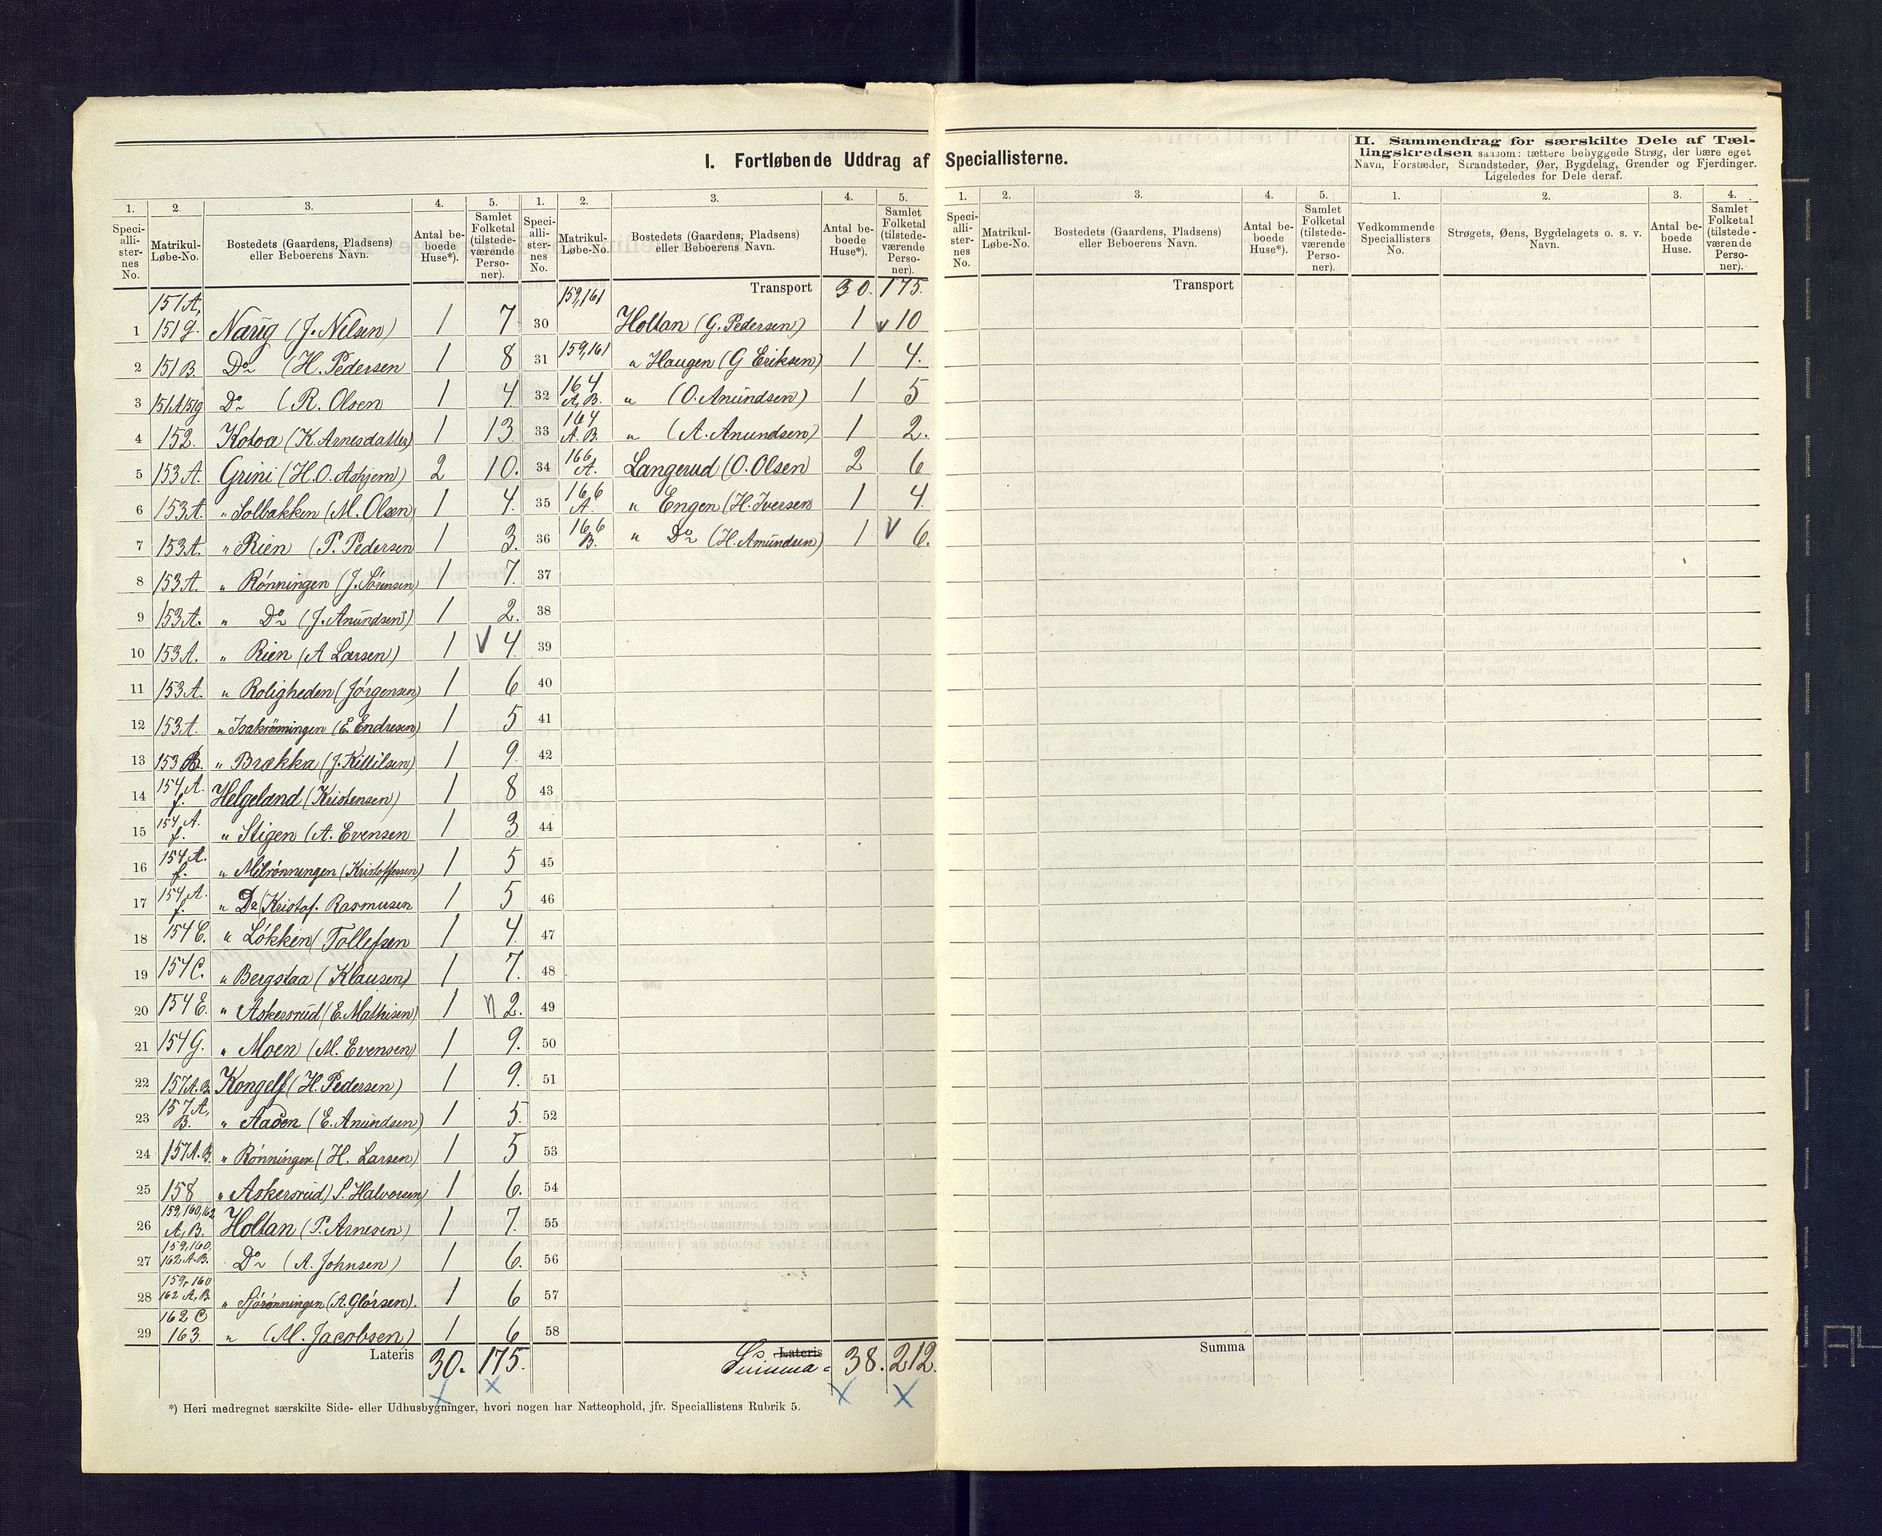 I. Fortløbende Uddrag af Speciallisterne.
II. Sammendrag for særskilte Dele af Tæl-
lingskredsen saasom: tættere bebyggede Strøg, der bære eget
Navn, Forstæder, Strandsteder, Øer, Bygdelag, Grender og Fjerdinger.
Ligeledes for Dele deraf.
1. 2. 3. 4. 5. 1. 2. 3. 4. 5. 1. 2. 3. 4. 5. 1. 2. 3. 4.
Speci-alli-ster-nes No. Matrikul-Løbe-No. Bostedets (Gaardens, Pladsens) eller Beboerens Navn. Antal be-boede Huse*). Samlet Folketal (tilstede-værende Perso-ner).
Speci-alli-ster-nes No. Matrikul-Løbe-No. Bostedets (Gaardens, Pladsens) eller Beboerens Navn. Antal be-boede Huse*). Samlet Folketal (tilstede-værende Perso-ner).
Speci-alli-ster-nes No. Matrikul-Løbe-No. Bostedets (Gaardens, Pladsens) eller Beboerens Navn. Antal be-boede Huse*). Samlet Folketal (tilstede-værende Perso-ner).
Vedkommende Speciallisters No. Strøgets, Øens, Bygdelagets o. s. v. Navn. Antal be-boede Huse. Samlet Folketal (tilstede-værende Personer).
1 151A, 151g. Narig (J. Nelsen) 1 7
2 151B. Do (H. Pedersen 1 8
3 151A 151g Do (R. Olsen 1 4
4 152. Kotoa (K. Arnesdatter) 1 13
5 153A. Grini (H. O. Askjem) 2 10.
6 153A. " Solbakken (M. Olsen) 1 4.
7 153A. " Rien (P. Pedersen 1 3.
8 153A. " Rønningen (J. Sørensen) 1 7.
9 153A. " Do (J. Anundsen) 1 2.
10 153A. " Rien (A Larsen) 1 V 4.
11 153A. " Roligheden (Jørgensen) 1 6
12 153A. " Isakrønningen (E. Endresen) 1 5
13 153B. " Brækka (J. Kittilsen) 1 9.
14 154A. f. Helgeland (Kristensen) 1 8
15 154A. f. " Stigen (A. Evensen 1 3
16 154A. f. " Melrønningen (Kristoffersen) 1 5
17 154A. f. " Do (Kristof. Rasmusen 1 5
18 154C. " Løkken (Tollefsen 1 4.
19 154C. " Bergstaa (Klausen) 1 7.
20 154E. " Askersrud (E. Mathisen) 1 2.
21 154G. " Moen (M. Evensen) 1 9.
22 157A.B. Kongelf (H. Pedersen) 1 9.
23 157A, B. " Aasen (E. Anundsen) 1 5.
24 157A.B. " Rønningen (H. Larsen) 1 5
25 158 " Askersrud) S. Halvorsen) 1 6.
26 159,160,162 A,B. Holtan (P. Arnesen) 1 7.
27 159,160, 162A.B. Do (A. Johnsen) 1 6.
28 159,160 162A,B " Sjørønningen (A. Glørsen). 1 6
29 162C 163. " (M. Jacobsen) 1 6
Lateris 30. 175.
Transport 30. 175.
30 159,161 Holtan (G. Pedersen) 1 v 10
31 159,161 " Haugen (G Eriksen) 1 4.
32 164 A,B. " (O. Anundsen) 1 5
33 164 A.B. " (A. Anundsen) 1 2.
34 166 A. Langerud (O. Olsen 2 6
35 166 A. " Engen (H. Iversen 1 4
36 166 B. " Do (H. Amundsen) 1 V 6.
37
38
39
40
41
42
43
44
45
46
47
48
49
50
51
52
53
54
55
56
57
58
Lateris
Summa 38. 212.
Transport
Summa
*) Heri medregnet særskilte Side- eller Udhusbygninger, hvori nogen har Natteophold, jfr. Speciallistens Rubrik 5.